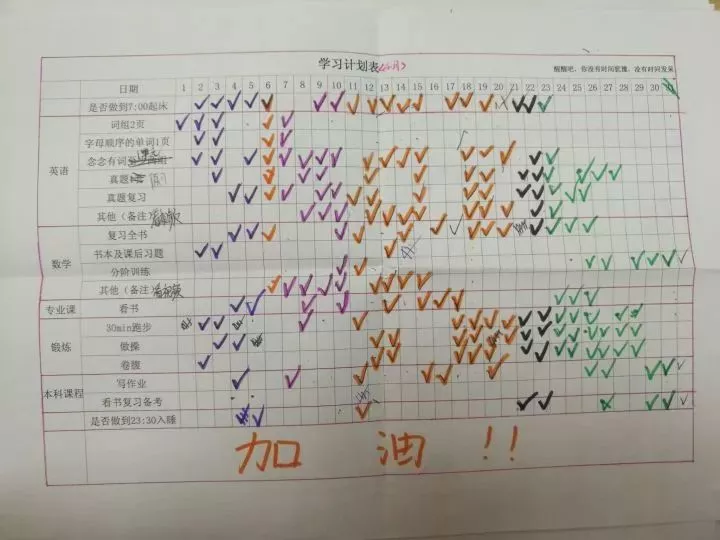 学习计划表
醒醒吧，你没有时间犹豫，没有时间发呆
日期 1 2 3 4 5 6 7 8 9 10 11 12 13 14 15 16 17 18 19 20 21 22 23 24 25 26 27 28 29 30
是否做到7:00起床
英语
词组2页
字母顺序的单词1页
念念有词
真题
真题复习
其他（备注）
数学
复习全书
书本及课后习题
分阶训练
其他（备注）
专业课
看书
锻炼
30min跑步
做操
卷腹
本科课程
写作业
看书复习备考
是否做到23:30入睡
加 油 !!